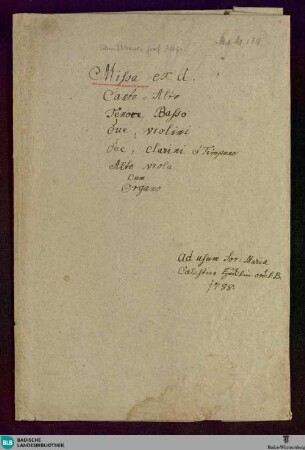 Missa ex d.
Canto, Alto
Tenore, Basso
Due, violini
Due, clarini é Timpano
Alto viola
Con
Organo
Ad usum Sor: Maria
O: S: B.
1788.
BLB BADISCHE
LANDESBIBLIOTHEK
Baden-Württemberg